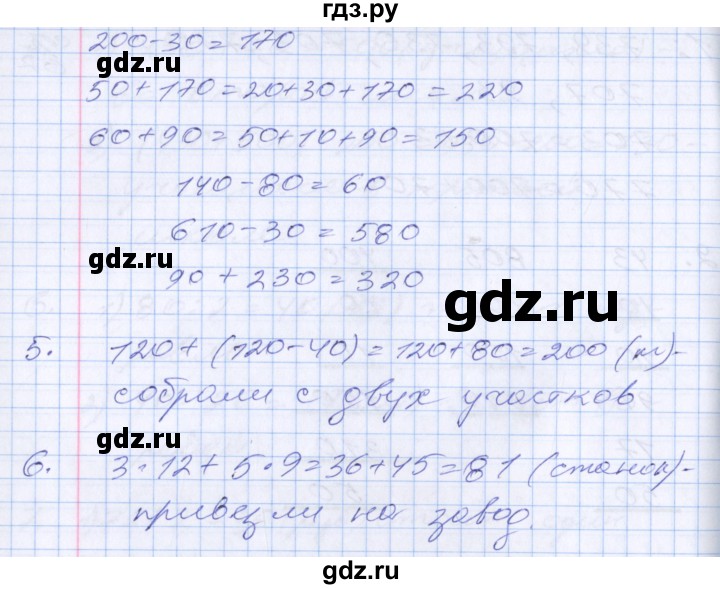 гдз.ру
200-30=170
gdz.ru
50+170=20+30+170=220
60+90=50+10+90=150
140-80=60
610-30=580
gdz.ru
90+230=320
gdz.ru
5. 120+(120-40)=120+80=200 (т)-
собрали с двух участков
gdz.ru
6. 3·12+5·9=36+45=81 (станок)-
привезли на завод.
gdz.ru
gdz.ru